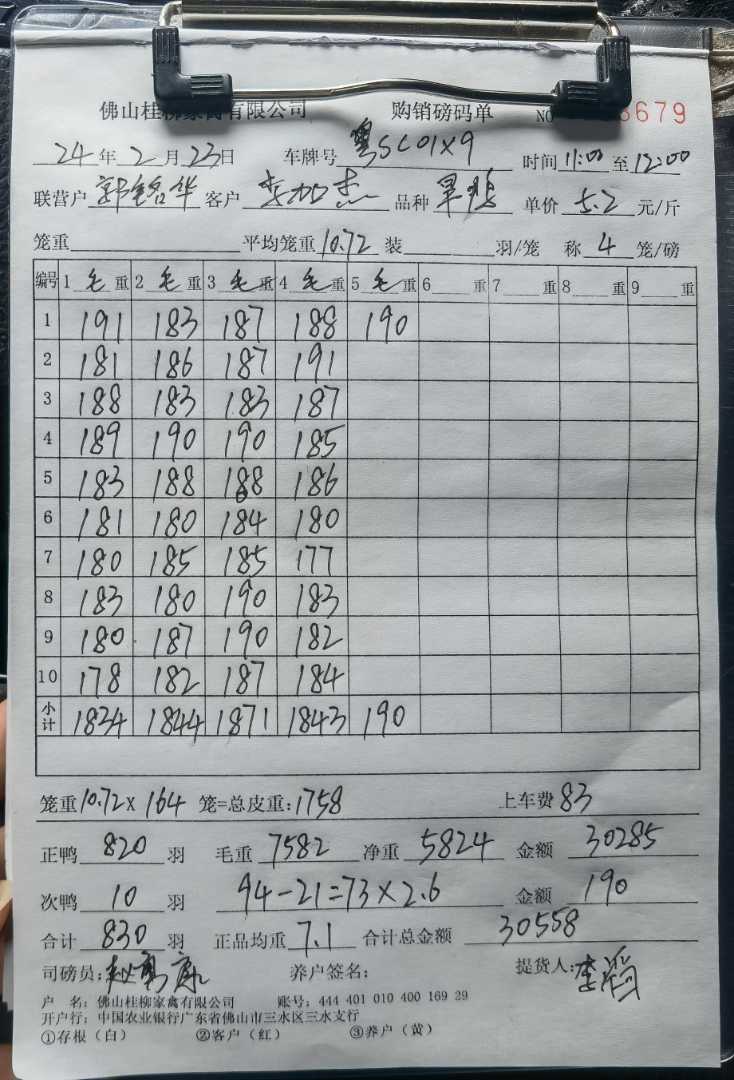 佛山桂柳家禽有限公司 购销磅码单 NO 8679
24年2月23日 车牌号 粤SC01X9 时间 11:00 至 12:00
联营户 郭铭华 客户 李加杰 品种 单价 5.2 元/斤
笼重 平均笼重 10.72 装 羽/笼 称 4 笼/磅
编号 1 毛 重 2 毛 重 3 毛 重 4 毛 重 5 毛 重 6 重 7 重 8 重 9 重
1 191 183 187 188 190
2 181 186 187 191
3 188 183 183 187
4 189 190 190 185
5 183 188 188 186
6 181 180 184 180
7 180 185 185 177
8 183 180 190 183
9 180 187 190 182
10 178 182 187 184
小计 1834 1844 1871 1843 190
笼重 10.72 X 164 笼=总皮重: 1758 上车费 83
正鸭 820 羽 毛重 7582 净重 5824 金额 30285
次鸭 10 羽 94-21=73×2.6 金额 190
合计 830 羽 正品均重 7.1 合计总金额 30558
司磅员: 养户签名: 提货人: 李滔
户 名: 佛山桂柳家禽有限公司 账号: 444 401 010 400 169 29
开户行: 中国农业银行广东省佛山市三水区三水支行
①存根（白） ②客户（红） ③养户（黄）